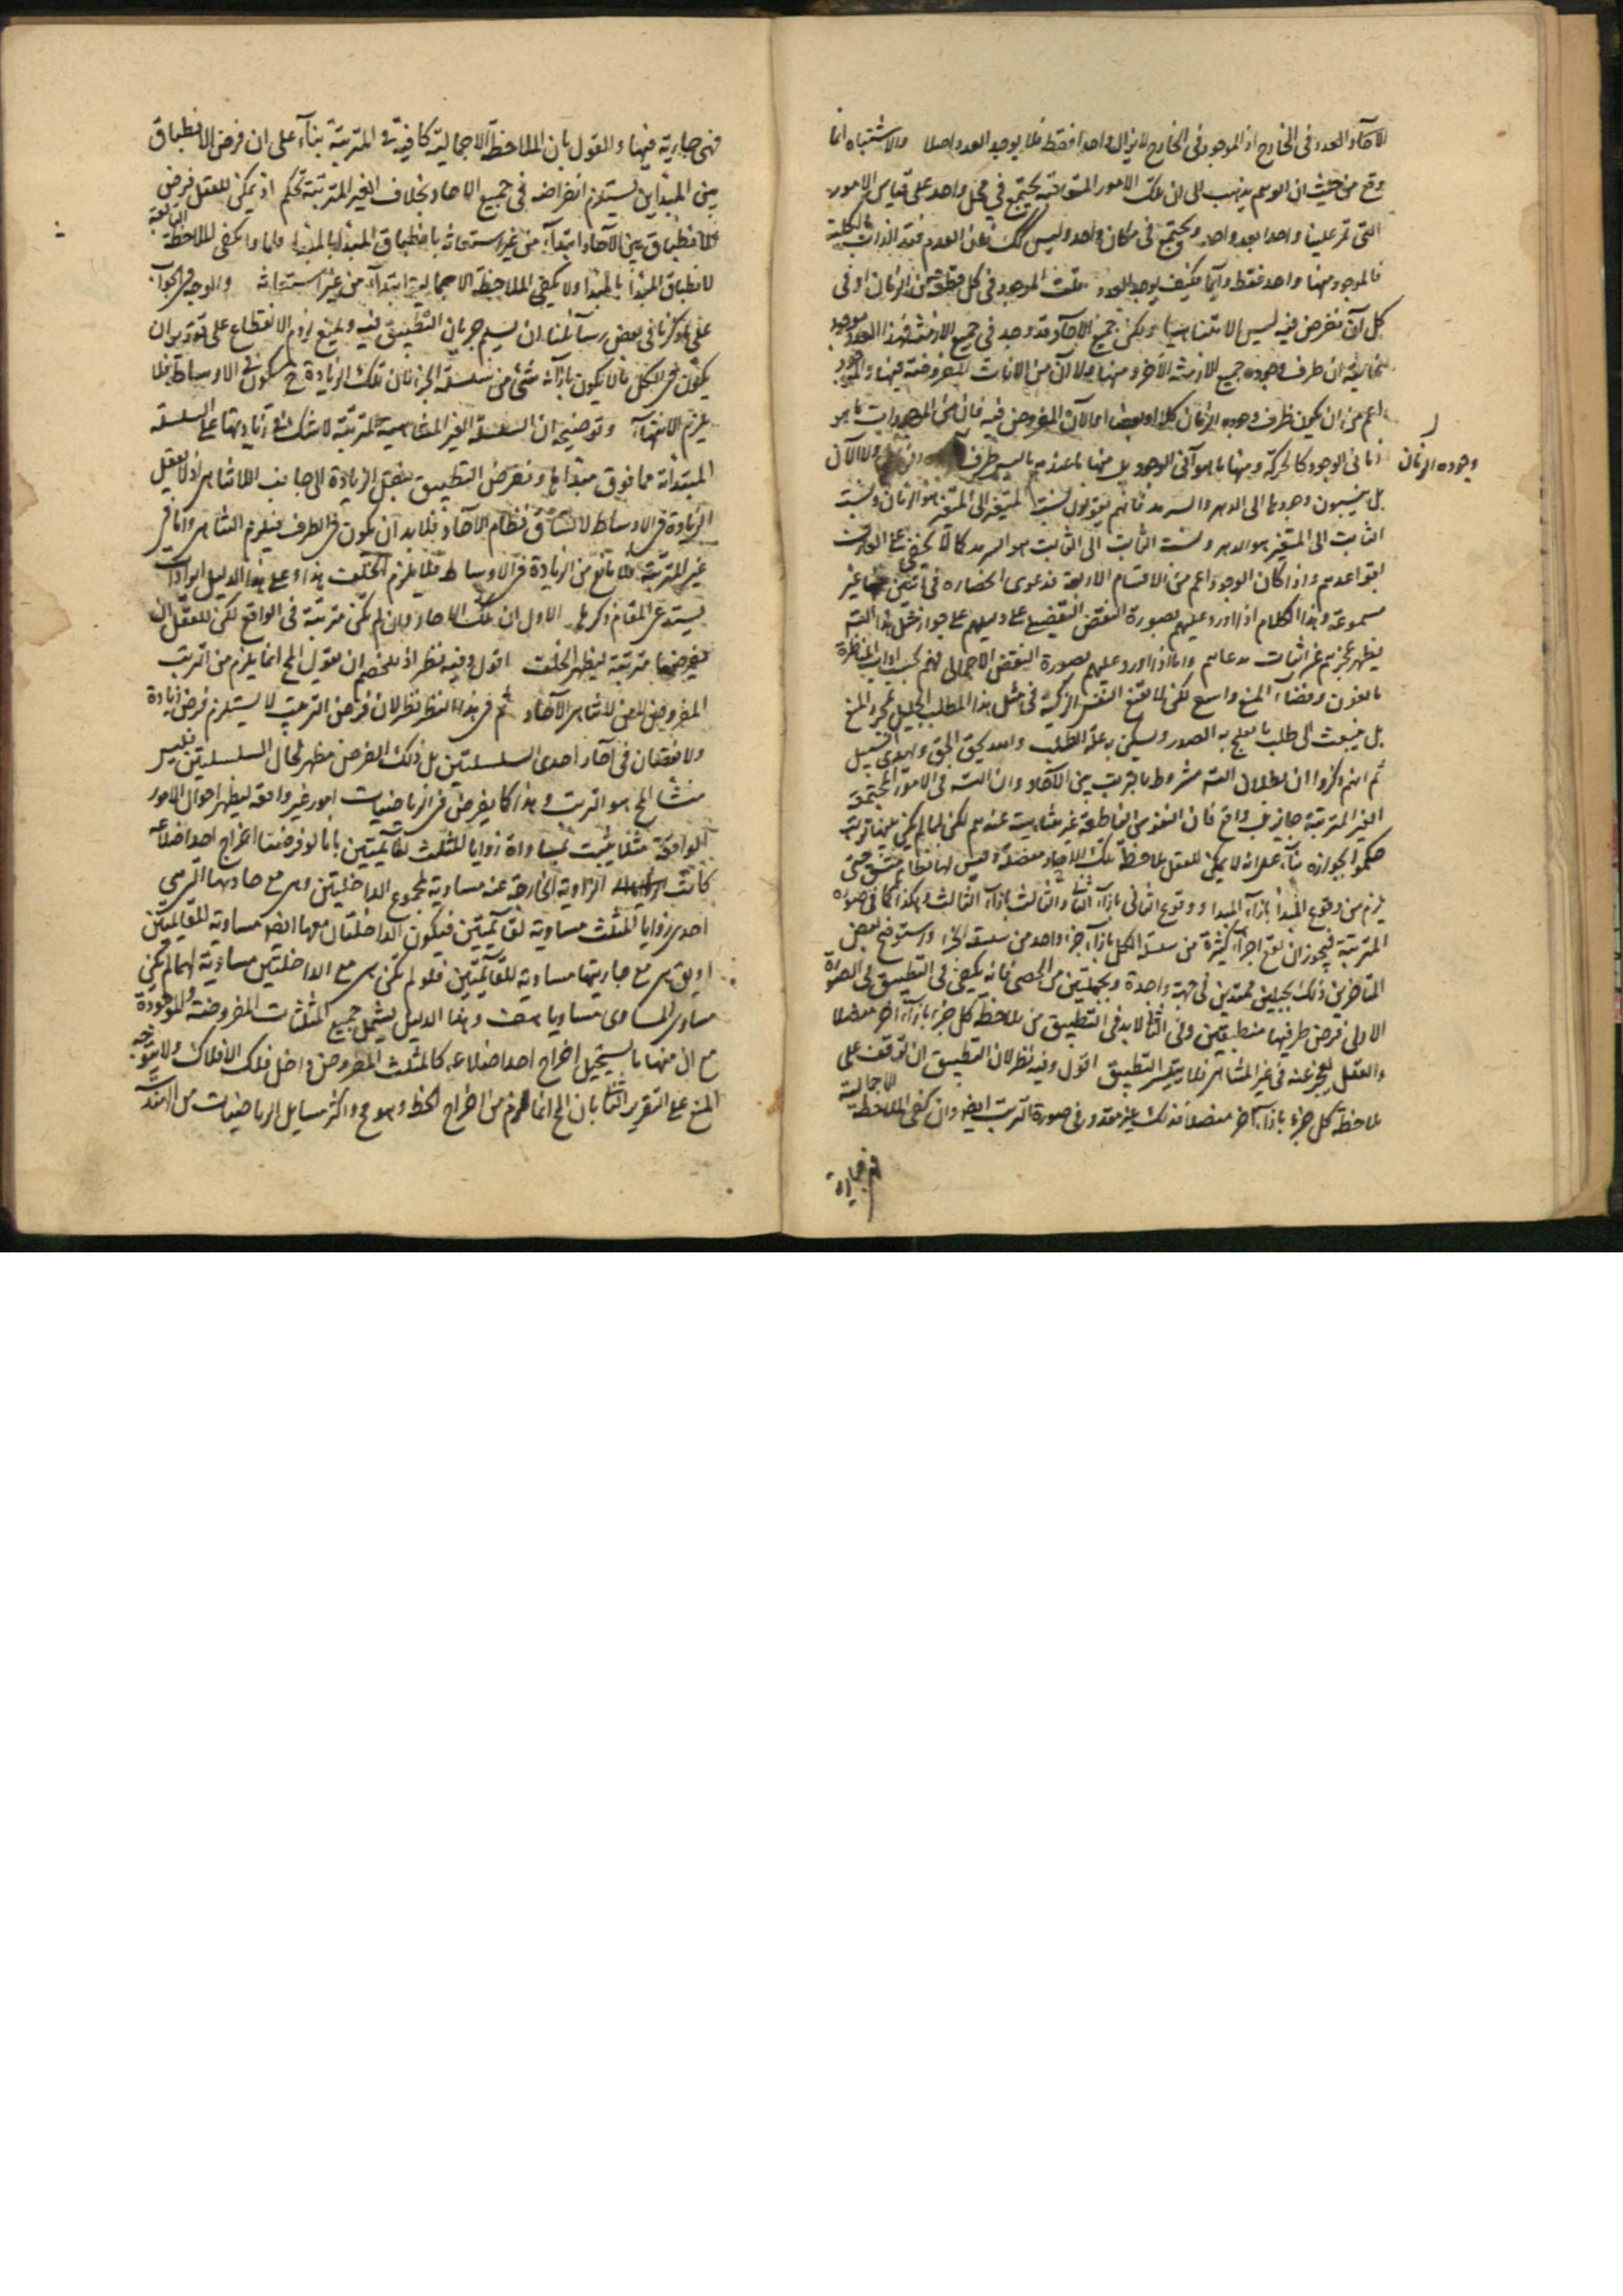 الآحاد العدد فى الخارج اذ الموجود فى الخارج لا يزال واحدا فقط فلا يوجد العدد اصلا والاشتباه انما
وقع من حيث ان الوهم يذهب الى ان تلك الامور المتعاقبة يجتمع فى محل واحد على قياس الامور
التى تمر علينا واحدا بعد واحد ويجتمع فى مكان واحد وليس كك فان العدم فقد الذات بالكلية
فالموجود منها واحد فقط دائما فكيف يوجد العدد قلت الموجود فى كل قطعة من الزمان او فى
كل آن نفرض فيه ليس الا متناهيا ولكن جميع الآحاد قد وجد فى جميع الازمنة فهذا العدد موجود
غايته ان ظرف وجوده جميع الازمنة لا جزء منها ولا آن من الآنات المفروضة فيها والوجود
اعم من ان يكون ظرف وجوده الزمان كلا او بعضا او الآن المفروض فيه فان من الموجودات ما هو
وجوده الزمان
زمانى الوجود كالحركة ومنها ما هو آنى الوجود بل منها ما عندهم ليس ظرف ولا الآن
بل ينسبون وجودها الى الدهر والسرمد فانهم يقولون نسبة المتغير الى المتغير هو الزمان ونسبة
الثابت الى المتغير هو الدهر ونسبة الثابت الى الثابت هو السرمد كما لا يخفى على العارف
بقواعدهم واذا كان الوجود اعم من الاقسام الاربعة فدعوى انحصاره فى قسمين منها غير
مسموعة وهذا الكلام اذا اورد عليهم بصورة النقض التفصيلى على دليلهم على جواز مثل هذا التسلسل
يظهر عجزهم عن اثبات مدعاهم واما اذا اورد عليهم بصورة النقض الاجمالى فهم بحسب آداب المناظرة
مانعون وفضاء المنع واسع لكن لا تقنع النفس الزكية فى مثل هذا المطلب الجليل بمجرد المنع
بل ينبعث الى طلب ما يثلج به الصدور ويسكن به غلة الطلب والله يحق الحق ويهدى السبيل
ثم انهم ذكروا ان بطلان التسلسل مشروط بالترتب بين الآحاد وان التسلسل فى الامور المجتمعة
الغير المترتبة جايز بل واقع فان النفوس الناطقة غير متناهية عندهم لكن لما لم يكن بينها ترتب
حكموا بجوازه بناء على انه لا يمكن للعقل ملاحظة تلك الآحاد مفصلة وليس لها نظام متسق حتى
يلزم من وقوع المبدأ بازاء المبدأ وقوع الثانى بازاء الثانى والثالث بازاء الثالث وهكذا كما فى صورة
المترتبة فيجوز ان يقع اجزاء كثيرة من سلسلة الكل بازاء جزء واحد من سلسلة الجزء واستوضح بعض
المتأخرين ذلك بحبلين ممتدين فى جهة واحدة وبجملتين من الحصى فانه يكفى فى التطبيق فى الصورة
الاولى فرض طرفيهما منطبقتين وفى الثانى لا بد فى التطبيق من ملاحظة كل جزء بازاء آخر مفصلا
والعقل يعجز عنه فى غير المتناهى فلا يتيسر التطبيق اقول وفيه نظر لان التطبيق ان توقف على
ملاحظة كل جزء بازاء آخر مفصلا فذلك غير مقدور فى صورة الترتب ايضا وان كفى الملاحظة الاجمالية
فهى جارية
فهى جارية فيها والقول بان الملاحظة الاجمالية كافية فى المترتبة بناء على ان فرض الانطباق
بين المبدأين يستلزم انفراضه فى جميع الآحاد بخلاف الغير المترتبة تحكم اذ يمكن للعقل فرض
الانطباق بين الآحاد ابتداء من غير استعانة بانطباق المبدأ بالمبدأ ولماذا يكفى الملاحظة التابعة
لانطباق المبدأ بالمبدأ ولا يكفى الملاحظة الاجمالية ابتداء من غير استعانة والوجه فى الجواب
على ما ذكرنا فى بعض رسائلنا ان يسلم جريان التطبيق فيه ويمنع لزوم الانقطاع على تقدير ان
يكون فى الكل ما لا يكون بازائه شئ من سلسلة الجزء فان تلك الزيادة ح يكون فى الاوساط فلا
يلزم الانتهاء وتوضيحه ان السلسلة الغير المتناهية المترتبة لا شك فى زيادتها على السلسلة
المبتدأة مما فوق مبدأها وبفرض التطبيق ينتقل الزيادة الى جانب اللاتناهى اذ لا يعقل
الزيادة فى الاوساط لاتساق نظام الآحاد فلا بد ان يكون فى الطرف فيلزم التناهى واما فى
غير المترتبة فلا مانع من الزيادة فى الاوساط فلا يلزم الخلف هذا وعلى هذا الدليل ايرادات
يستدعى المقام ذكرها الاول ان تلك الآحاد وان لم تكن مترتبة فى الواقع لكن للعقل ان
يفرضها مترتبة ليظهر الخلف اقول وفيه نظر اذ للخصم ان يقول المح انما يلزم من الترتب
المفروض لا من لا تناهى الآحاد ثم فى هذا النظر نظر لان فرض الترتب لا يستلزم فرض زيادة
ولا نقصان فى آحاد احدى السلسلتين بل ذلك الفرض مظهر لحال السلسلتين فليس
منشأ المح هو الترتب وهذا كما يفرض فى الرياضيات امور غير واقعة ليظهر احوال الامور
الواقعة مثلا يثبت مساواة زوايا المثلث لقائمتين بانا لو فرضنا اخراج احد اضلاعه
كانت الزاوية الخارجة عنه مساوية لمجموع الداخلتين وهى مع جارتها التى هى
احدى زوايا المثلث مساوية لقائمتين فيكون الداخلتان معها ايضا مساوية للقائمتين
او يق هى مع جارتها مساوية للقائمتين فلو لم تكن هى مع الداخلتين مساوية لهما لم يكن
مساوى المساوى مساويا هف وهذا الدليل يشمل جميع المثلثات المفروضة والموجودة
مع ان منها ما يستحيل اخراج احد اضلاعه كالمثلث المفروض داخل فلك الافلاك ولا يتوجه
المنع على التقرير الثانى بان المح انما لزم من اخراج الخط وهو مح واكثر مسايل الرياضيات من